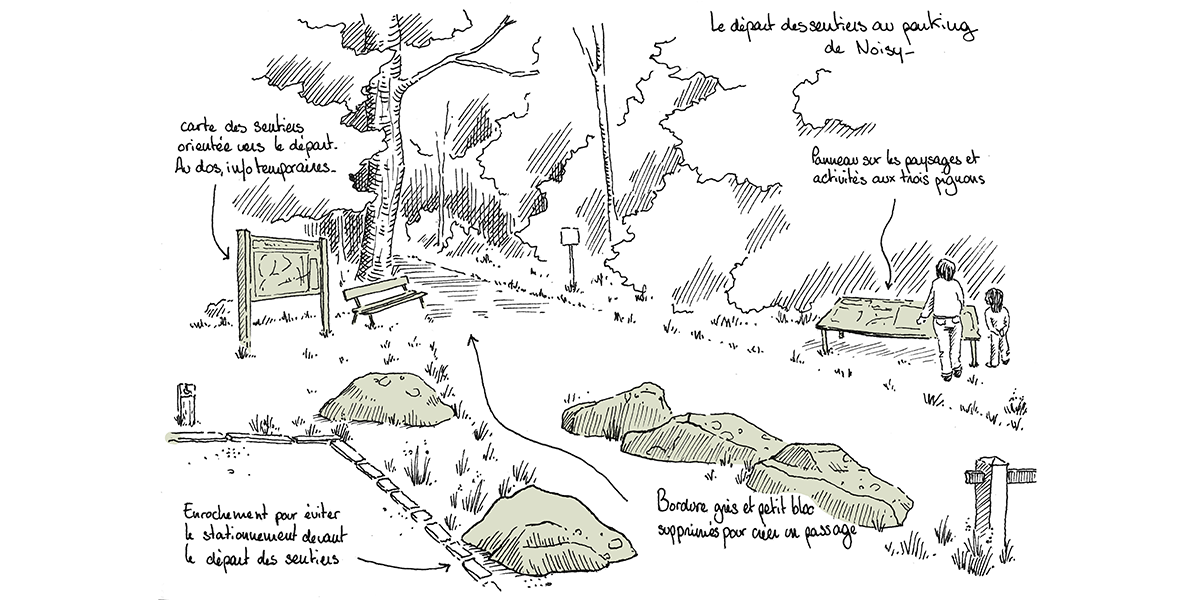 Le départ des sentiers au parking
de Noisy_
carte des sentiers
orientée vers le départ.
Au dos, info temporaires_
Panneau sur les paysages et
activités aux trois pignons
Enrochement pour éviter
le stationnement devant
le départ des sentiers
Bordure grès et petit bloc
supprimés pour créer un passage